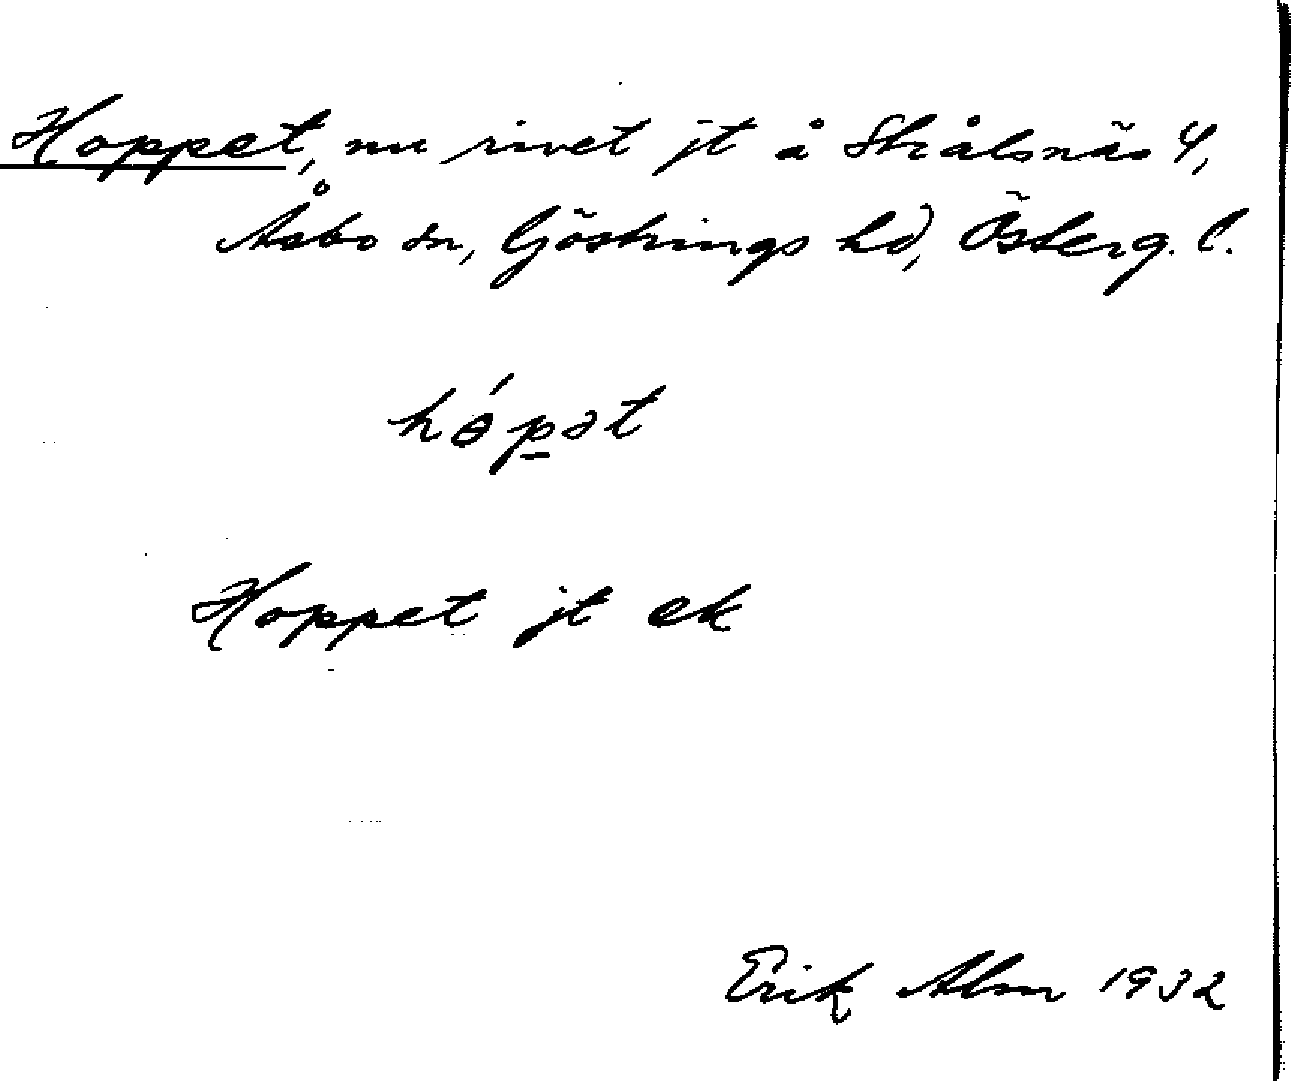 Hoppet, nu rivet jt å Strålsnäs 4,
Åsbo sn, Göstrings hd, Österg. l.
hópət
Hoppet jt ek
Erik Alm 1932